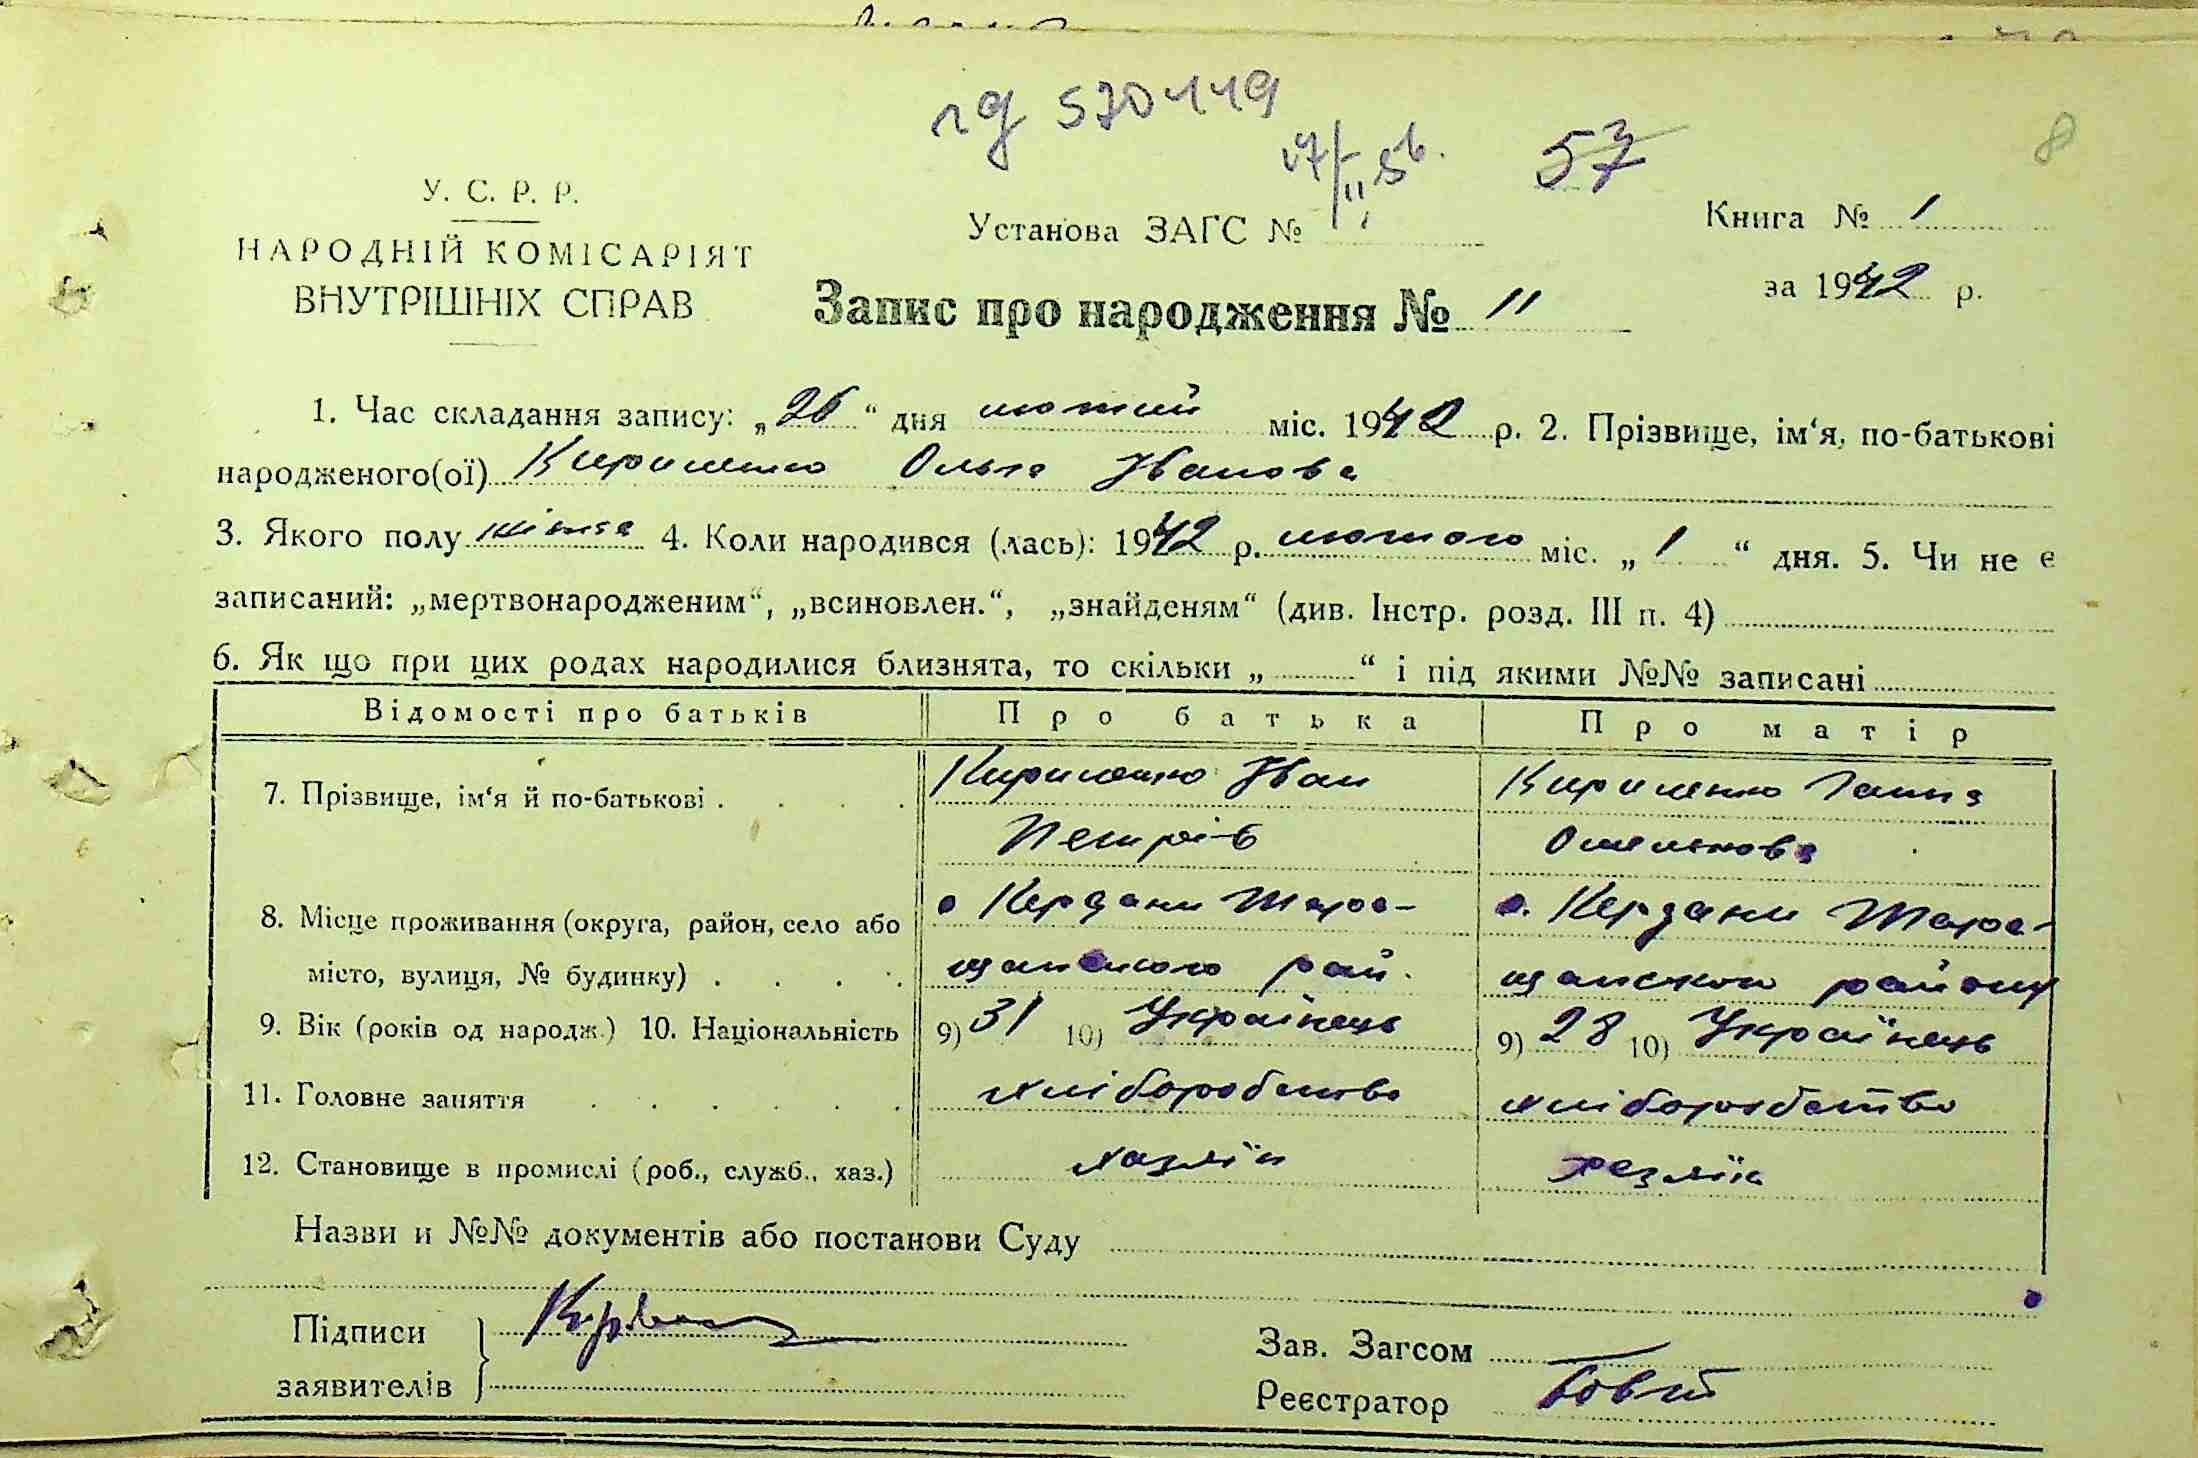 гд 570119
17/II 56.
57
8
У. С. Р. Р.
НАРОДНІЙ КОМІСАРІЯТ
ВНУТРІШНІХ СПРАВ
Установа ЗАГС №
Книга № 1
за 1942 р.
Запис про народження № 11
1. Час складання запису: „26“ дня лютий міс. 1942 р. 2. Прізвище, ім‘я, по-батькові
народженого(ої) Кириленко Ольга Іванова
3. Якого полу жіноча 4. Коли народився (лась): 1942 р. лютого міс. „1“ дня. 5. Чи не є
записаний: „мертвонародженим“, „всиновлен.“, „знайденям“ (див. Інстр. розд. III п. 4)
6. Як що при цих родах народилися близнята, то скільки „ “ і під якими №№ записані
Відомості про батьків Про батька Про матір
7. Прізвище, ім‘я й по-батькові . . . . Кириленко Іван Кириленко Ганна
Петрів Омелькова
8. Місце проживання (округа, район, село або с Кердани Тара- с. Кердани Тара-
місто, вулиця, № будинку) . . . . щанського рай. щанского району
9. Вік (років од народж.) 10. Національність 9) 31 10) Українець 9) 28 10) Українець
11. Головне заняття . . . . . . хліборобство хліборобство
12. Становище в промислі (роб., служб., хаз.) хазяїн хазяїн
Назви и №№ документів або постанови Суду
Підписи
заявителів
Зав. Загсом
Реєстратор